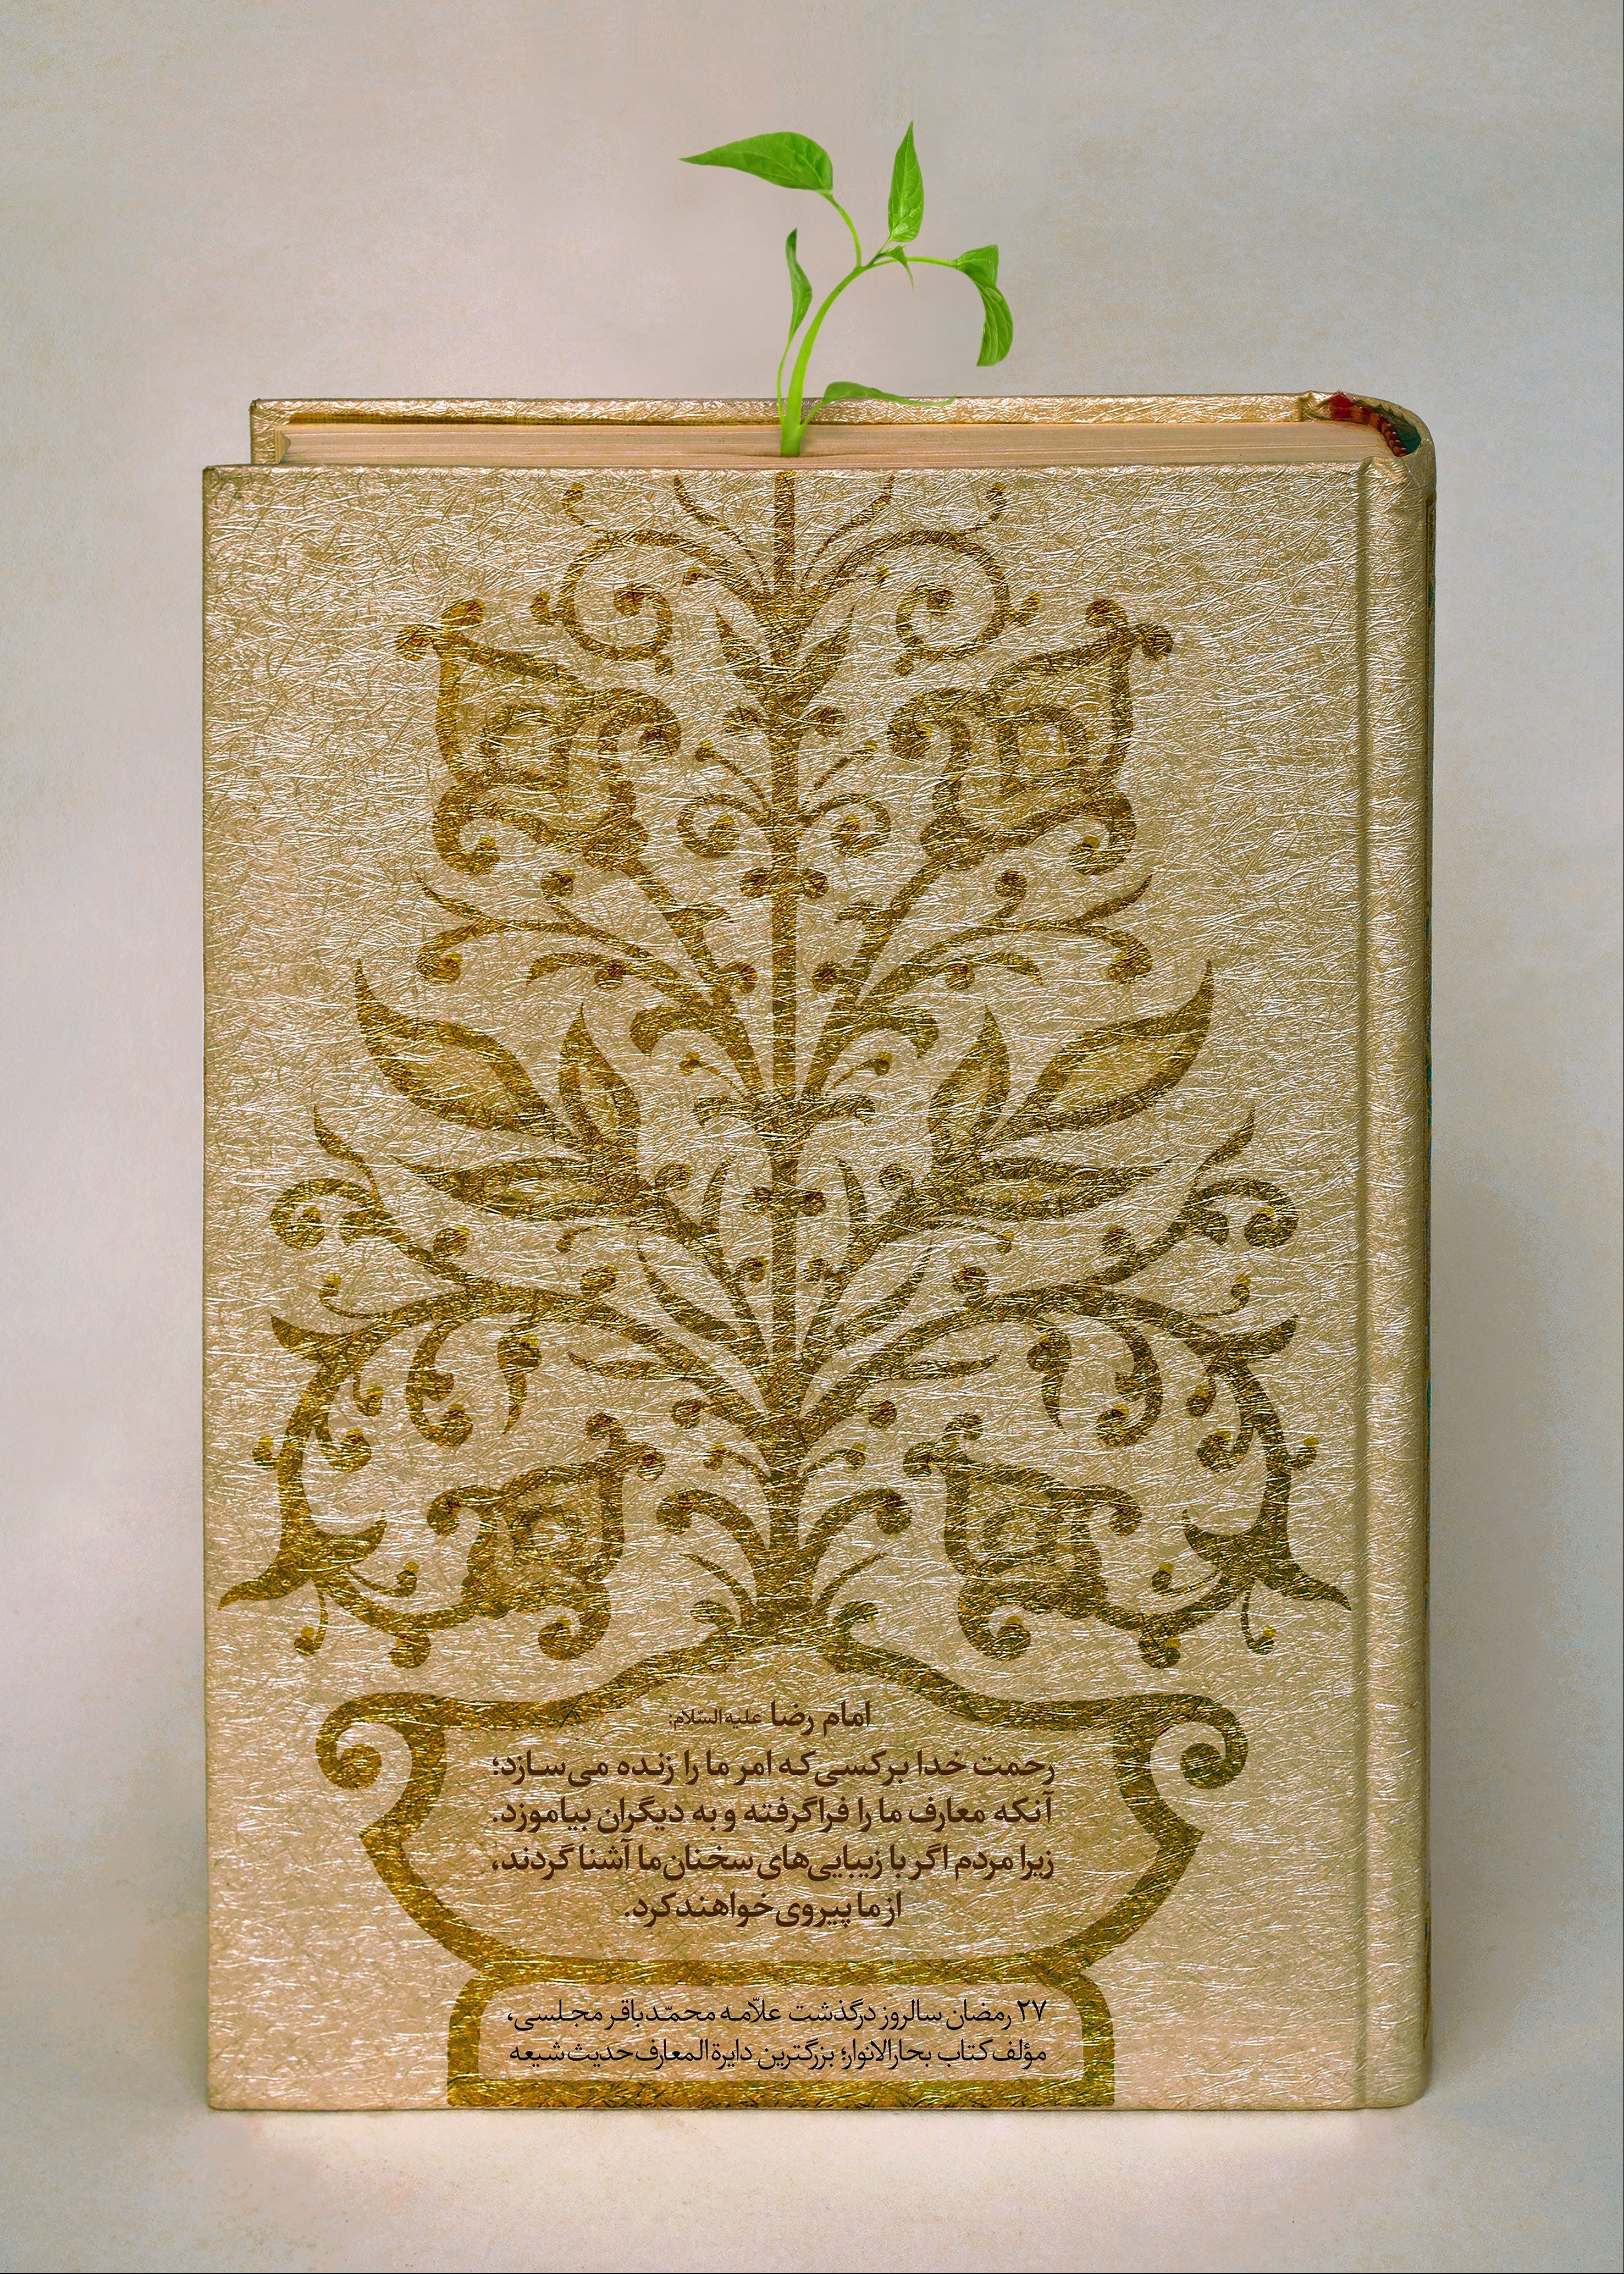 امام رضا علیه‌السّلام:
رحمت خدا بر کسی که امر ما را زنده می‌سازد؛
آنکه معارف ما را فراگرفته و به دیگران بیاموزد.
زیرا مردم اگر با زیبایی‌های سخنان ما آشنا گردند،
از ما پیروی خواهند کرد.
۲۷ رمضان سالروز درگذشت علاّمه محمّدباقر مجلسی،
مؤلف کتاب بحارالانوار؛ بزرگترین دایرة‌المعارف حدیث شیعه